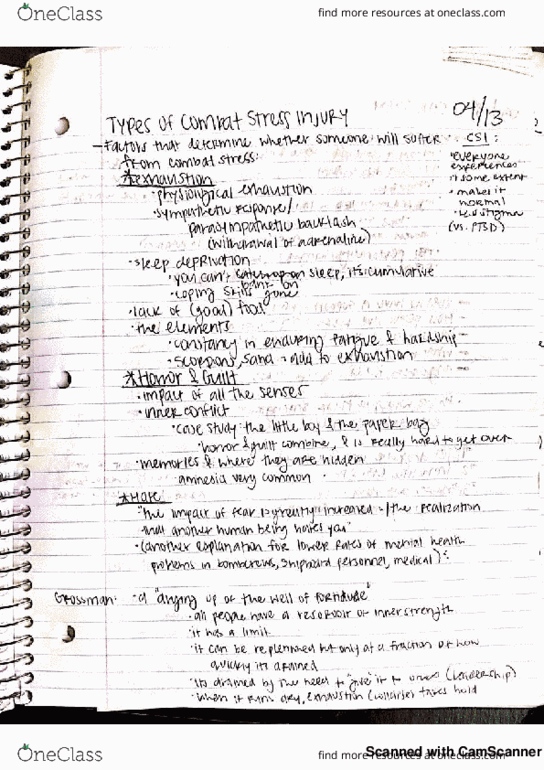 OneClass
find more resources at oneclass.com
04/13
TYPES OF COMBAT STRESS INJURY
- Factors that determine whether someone will suffer
from combat stress:
CSI:
• everyone
experiences
it some extent
• makes it
normal
• less stigma
(vs. PTSD)
*EXHAUSTION
• physiological exhaustion
• sympathetic response/
parasympathetic backlash
(withdrawal of adrenaline)
• sleep deprivation
• you can't on sleep, its cumulative
• coping skills gone
• lack of (good) food
• the elements
• constancy in enduring fatigue & hardship
• scorpions, sand - add to exhaustion
*Horror & Guilt
• impact of all the senses
• inner conflict
• case study: the little boy & the paper bag
• horror & guilt combine, & is really hard to get over
• memories & where they are hidden
amnesia very common
*Hate
• "the impact of fear is greatly increased w/the realization
that another human being hates you"
• (another explanation for lower rates of mental health
problems in bombcrews, shipboard personnel, medical)
Grossman: • a "drying up of the well of fortitude"
• all people have a reservoir of inner strength
• it has a limit
• it can be replenished but only at a fraction of how
quickly its drained
• Its drained by the need to "give" it to others (leadership)
• when it runs dry, exhaustion (collapse) takes hold
OneClass
find more resources at oneclass.com
Scanned with CamScanner